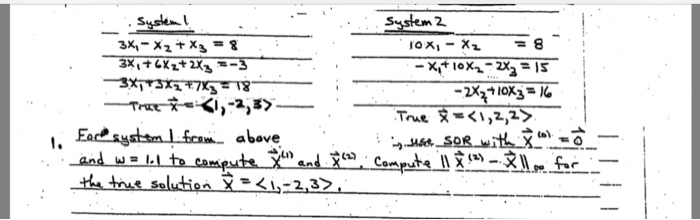 System 1
3x₁ - x₂ + x₃ = 8
3x₁ + 6x₂ + 2x₃ = -3
3x₁ + 3x₂ + 7x₃ = 18
True x⃗ = <1, -2, 3>
System 2
10x₁ - x₂ = 8
-x₁ + 10x₂ - 2x₃ = 15
-2x₂ + 10x₃ = 16
True x⃗ = <1, 2, 2>
1. For system 1 from above, use SOR with x⃗⁽⁰⁾ = 0⃗
and w = 1.1 to compute x⃗⁽¹⁾ and x⃗⁽²⁾. Compute ‖x⃗⁽²⁾ - x⃗‖∞ for
the true solution x⃗ = <1, -2, 3>.